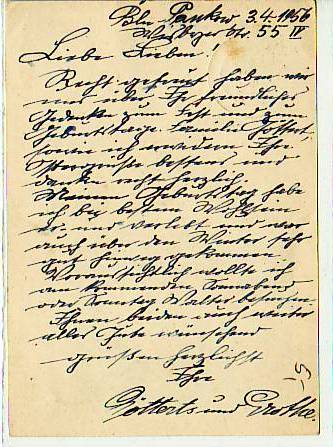 Bln Pankow 3.4.1956
Str. 55 IV
Liebe Lieben!
Recht gefreut haben wir
uns über Ihr freundliches
Gedenken zum Fest und zum
Geburtstage Familie Götterts,
sowie ich erwidern Ihre
Ostergrüsse bestens und
danken recht herzlich
Meinen Geburtstag habe
ich bei bestem Wohlsein
und verlebt und war
auch über den Winter sehr
gut hinweg gekommen.
Voraussichtlich wollte ich
am kommenden Sonnabend
oder Sonntag Walter besuchen.
Ihnen beiden auch weiter
alles Gute wünschend
grüßen herzlichst
Ihre
Götterts und Grothe.